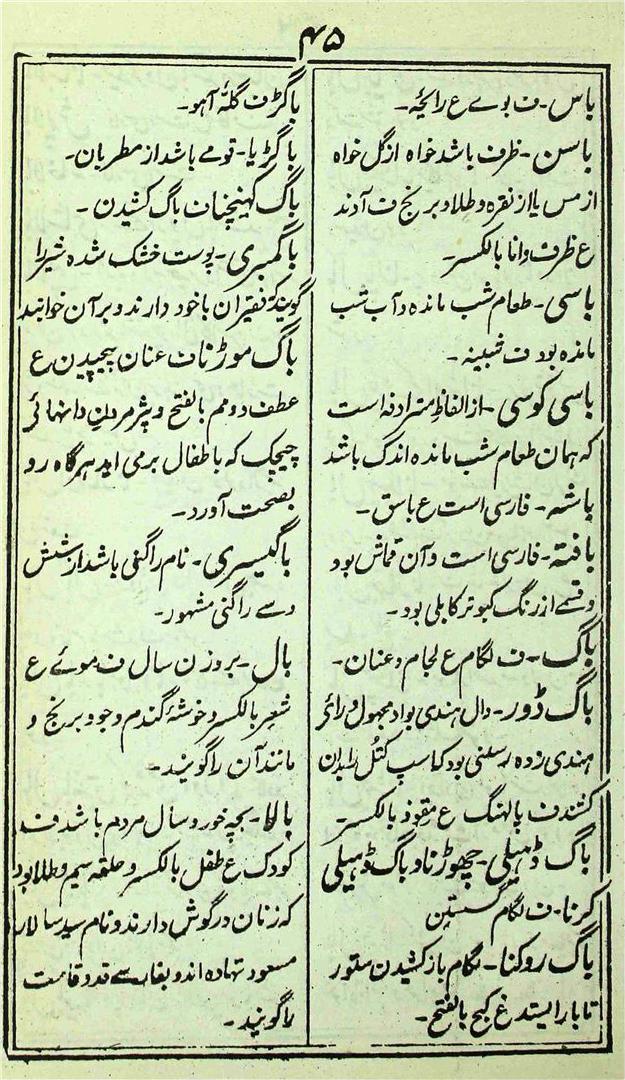 ۴۵
باس۔ ف بوے ع رائحہ۔
باسن۔ ظرف باشد خواہ از گل خواہ
از مس یا از نقرہ و طلا و برنج ف آوند
ع ظرف و انا بالکسر۔
باسی۔ طعام شب ماندہ و آب شب
ماندہ بود ف شبینہ۔
باسی کوسی۔ از الفاظ مترادفہ است
کہ ہمان طعام شب ماندہ اندک باشد
باشہ۔ فارسی است ع باسق۔
بافتہ۔ فارسی است و آن قماش بود
و قسمے از رنگ کبوتر کابلی بود۔
باگ۔ ف لگام ع لجام و عنان۔
باگ ڈور۔ دال ہندی بواو مجہول و رائے
ہندی زدہ رسنی بود کہ اسپ کتل را بدان
کشند ف پالہنگ ع مقود بالکسر۔
باگ ڈھیلی چھوڑنا و باگ ڈھیلی
کرنا۔ ف لگام گسستن
باگ روکنا۔ لگام باز کشیدن ستور
تا باز ایستد ع کبح بالفتح۔
باگڑ ف گلۂ آہو۔
باگڑیا۔ قومے باشد از مطربان۔
باگ کھینچنا ف باگ کشیدن۔
باگمبری۔ پوست خشک شدہ شیر را
گویند کہ فقیران باخود دارند و بر آن خوابند
باگ موڑنا ف عنان پیچیدن ع
عطف دوم بالفتح و پژمردن دانہائے
چیچک کہ باطفال برمی آید ہرگاہ رو
بصحت آورد۔
باگیسری۔ نام راگنی باشد از شش
و سے راگنی مشہور۔
بال۔ بروزن سال ف موئے ع
شعر بالکسر و خوشۂ گندم و جو و برنج و
مانند آن را گویند۔
بالا۔ بچہ خورد سال مردم باشد ف
کودک ع طفل بالکسر و حلقہ سیم و طلا بود
کہ زنان در گوش دارند و نام سید سالار
مسعود نہادہ اند و بفارسے قد و قامت
را گویند۔